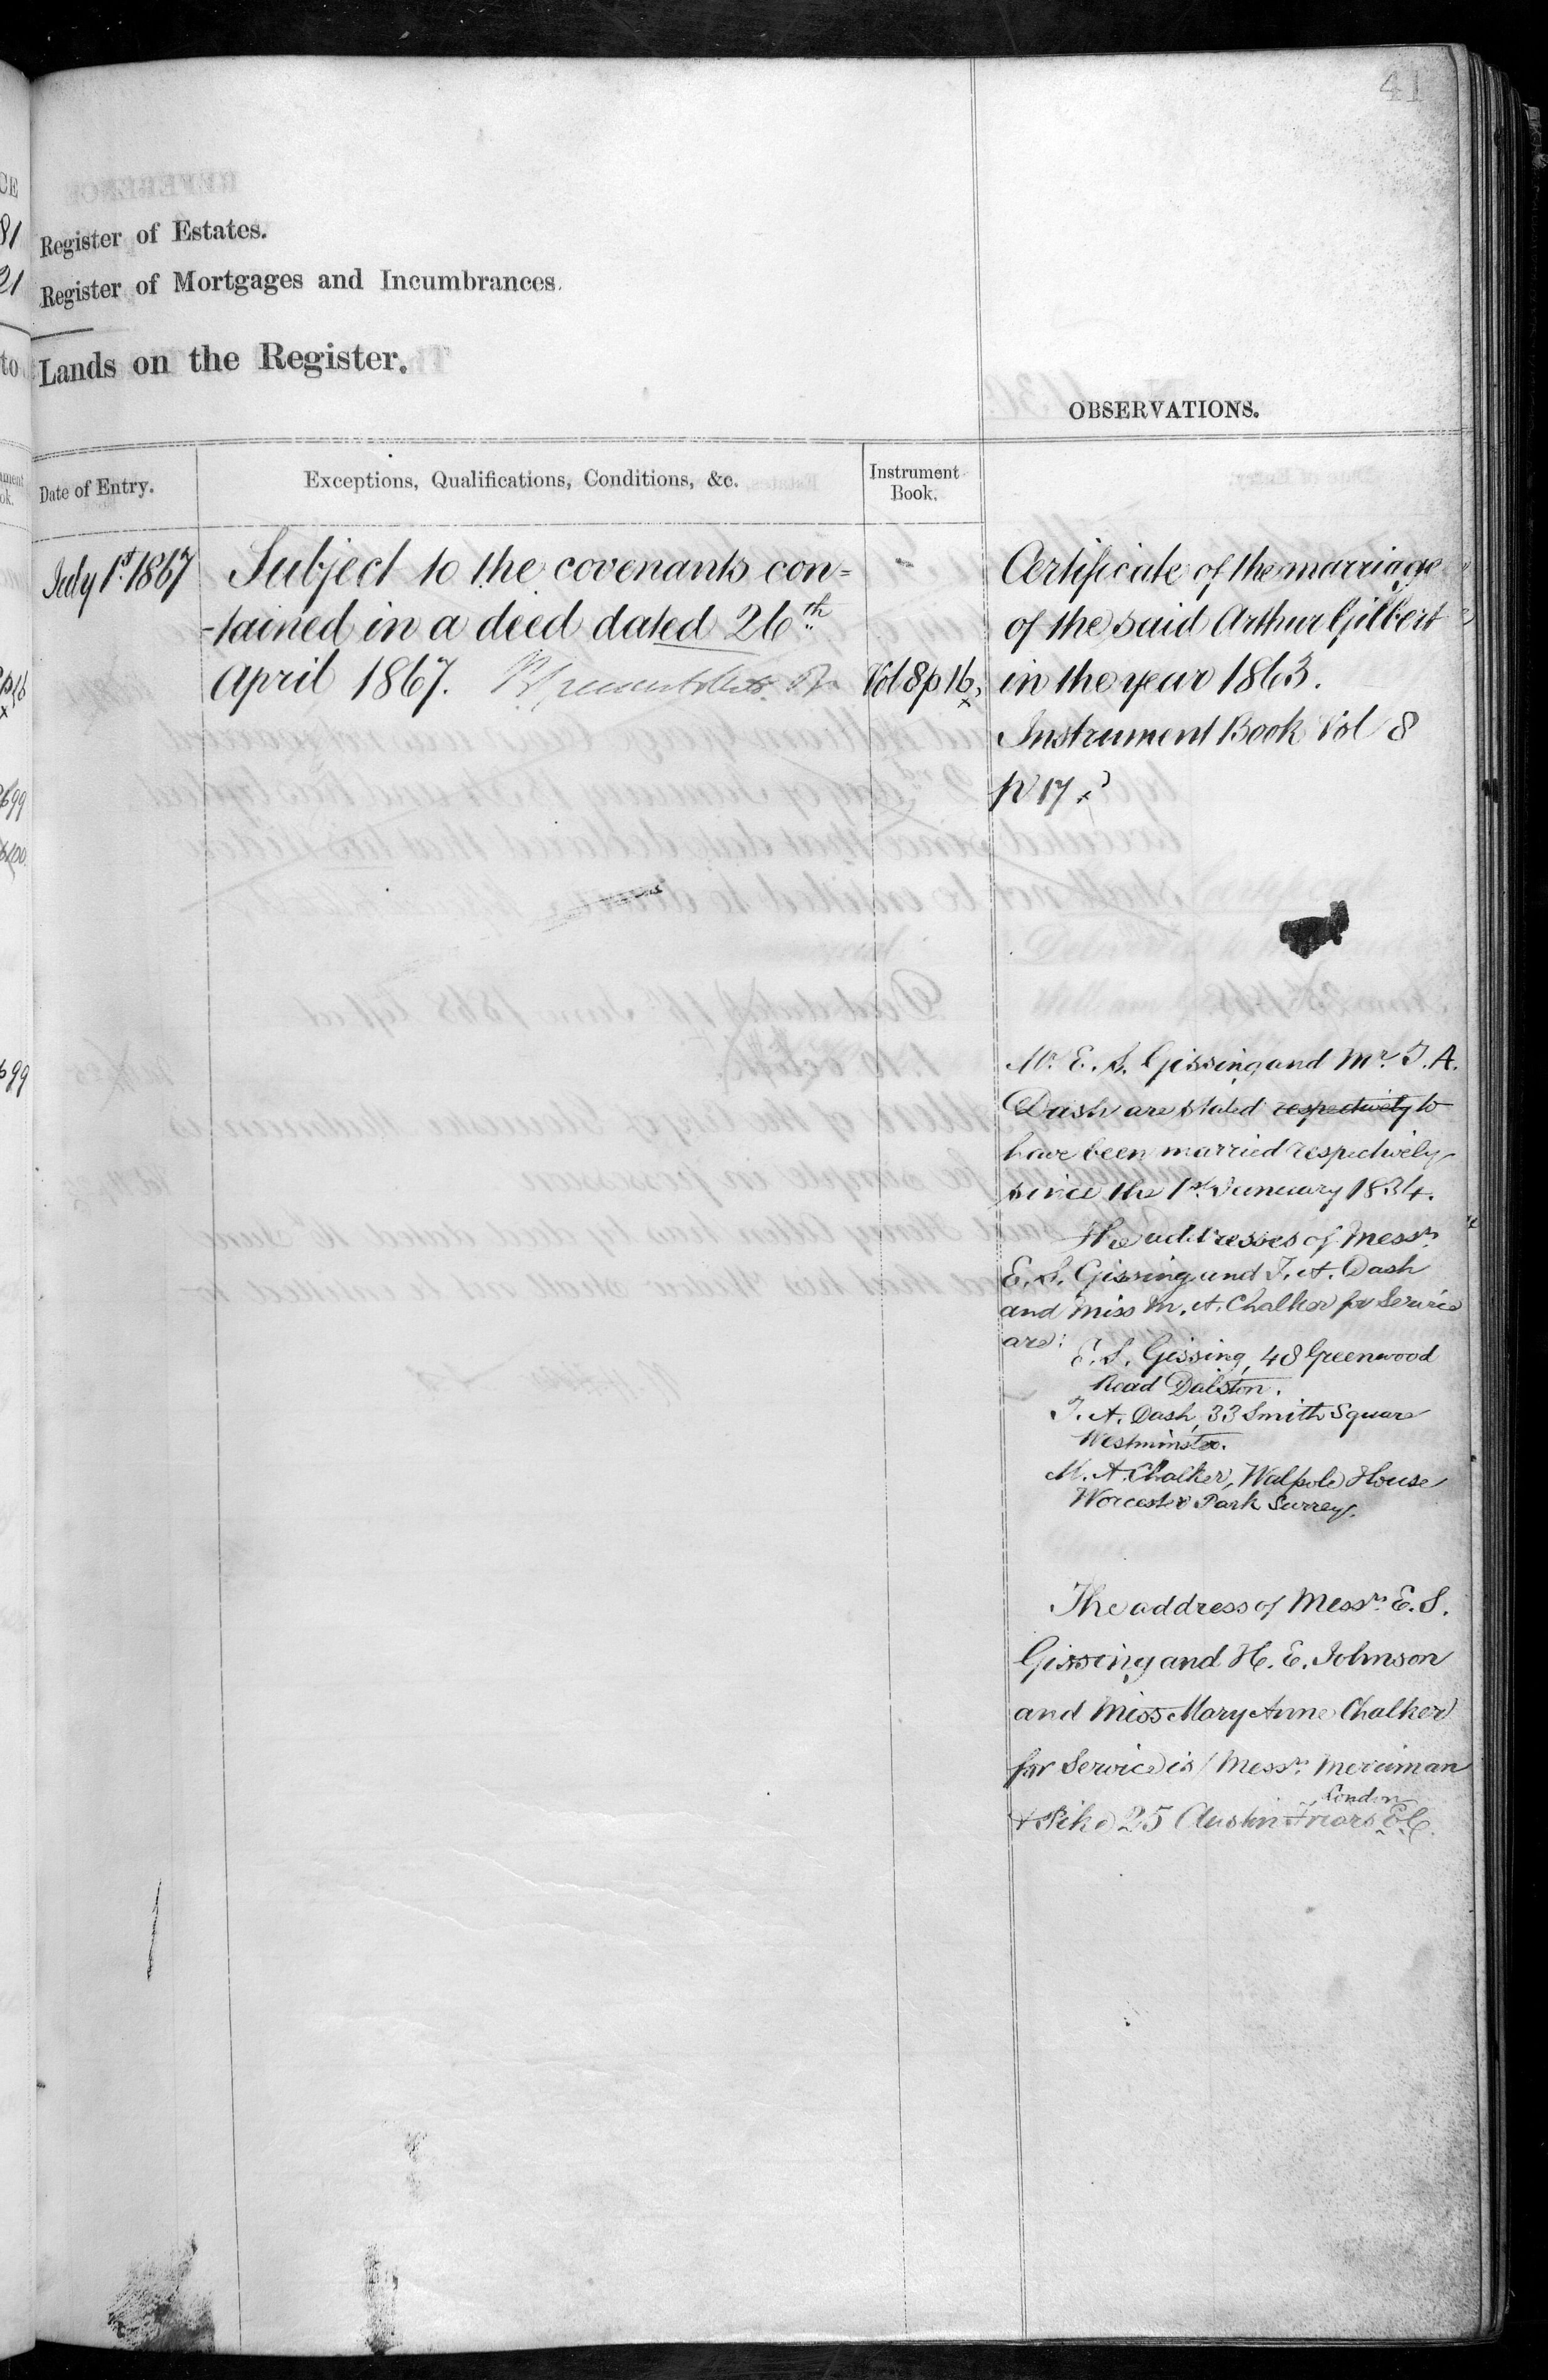 41
Register of Estates.
Register of Mortgages and Incumbrances.
Lands on the Register.
OBSERVATIONS.
Date of Entry.
Exceptions, Qualifications, Conditions, &c.
Instrument Book.
July 1st. 1867
Subject to the covenants con=
-tained in a deed dated 26th
April 1867.
Vol 8 p 16
Certificate of the marriage
of the said Arthur Gilbert
in the year 1863.
Instrument Book Vol 8
p 17
Mr. E. S. Gissing and Mr. T. A.
Dash are stated respectively to
have been married respectively
since the 1st. January 1834.
The addresses of Messrs.
E. S. Gissing and T. A. Dash
and Miss M. A. Chalker for Service
are:
E. S. Gissing, 48 Greenwood
Road Dalston.
T. A. Dash, 33 Smith Square
Westminster.
M. A. Chalker, Walpole House
Worcester Park Surrey.
The address of Messrs. E. S.
Gissing and H. E. Johnson
and Miss Mary Anne Chalker
for Service is Messrs. Merriman
London
& Pike 25 Austin Friars E.C.